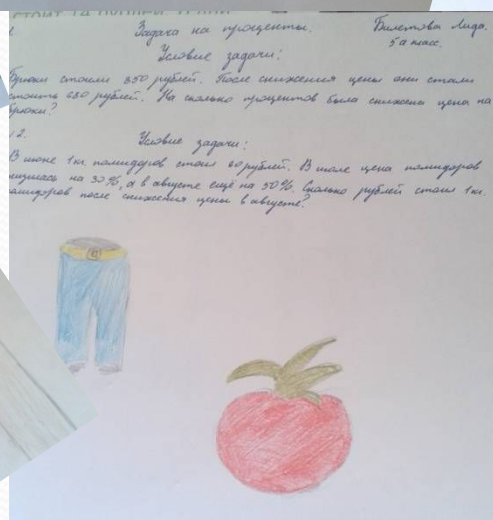 Задача на проценты. Билетова Лида.
5 а класс.
Условие задачи:
Брюки стоили 850 рублей. После снижения цены они стали
стоить 680 рублей. На сколько процентов была снижена цена на
брюки?
2.
Условие задачи:
В июне 1 кг помидоров стоил 60 рублей. В июле цена помидоров
снизилась на 30%, а в августе ещё на 50%. Сколько рублей стоил 1 кг.
помидоров после снижения цены в августе?